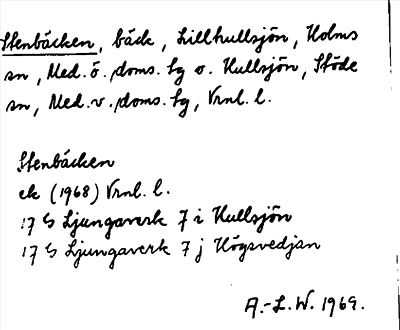 Stenbäcken, bäck, Lillhullsjön, Holms
sn, Med. ö. doms. sg o. Hullsjön, Stöde
sn, Med. v. doms. sg, Vrnl. l.
Stenbäcken
ek (1968) Vrnl. l.
17 G Ljungaverk 7 i Hullsjön
17 G Ljungaverk 7 j Högsvedjan
A.-L. W. 1969.